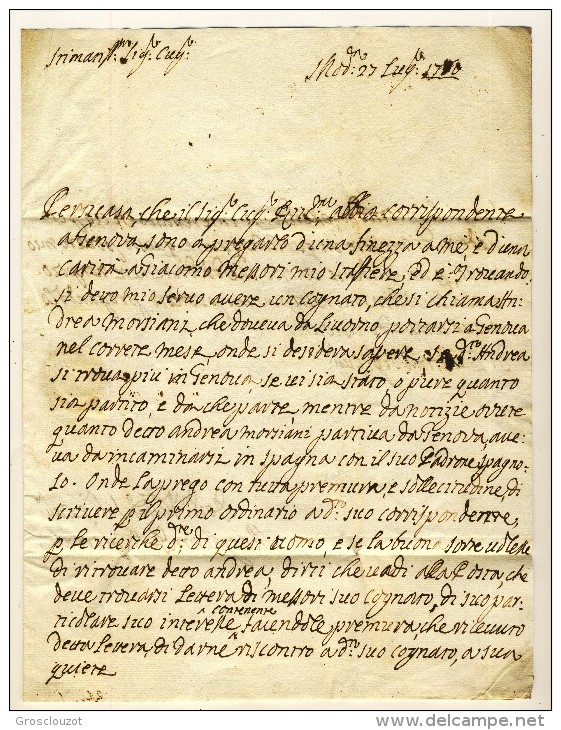 Stimatis.mo Sig.r Cug.o
Mod.a 27 Lug.o 1710
Persuasa, che il Sig.r Cug.o abbia Corrispondente
a Genova, sono a pregarlo d'una finezza a me, e d'una
Carità a Giacomo Messori mio Staffiere, ed e. Trovando
si detto mio servo avere un Cognato, che si chiama An
drea Morsiani, che doveva da Livorno portarsi a Genova
nel corrente mese, onde si desidera sapere se d.to Andrea
si trova più in Genova, se vi sia stato, o pure quanto
sia partito, e da che parte, mentre da notizie avute
quanto detto Andrea Morsiani partiva da Genova, ave
va da incaminarsi in Spagna con il suo Padrone Spagno
lo. Onde la prego con tutta premura, e sollecitudine di
scrivere p il primo ordinario a d.o suo corrispondente,
p le ricerche d.te di quest'uomo, e se la buona sorte volesse
di ritrovare detto Andrea, dirli che vadi alla Posta, che
deve trovarsi Lettera di Messori suo Cognato, di suo par
ticolare suo interesse contenente facendole premura, che ricevuto
detta lettera, di darne riscontro a d.to suo Cognato, a sua
quiete
Grosclouzot
www.delcampe.net